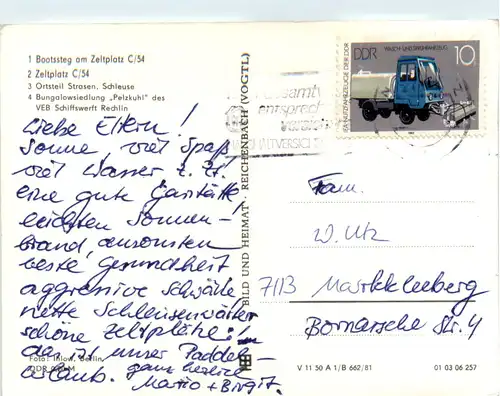 1 Bootssteg am Zeltplatz C/54
2 Zeltplatz C/54
3 Ortsteil Strasen, Schleuse
4 Bungalowsiedlung „Pelzkuhl" des
VEB Schiffswerft Rechlin
Liebe Eltern!
Sonne, viel Spaß
viel Wasser z. Zt.
eine gute Gaststätte
leichten Sonnen-
brand, ansonsten
beste Gesundheit
aggressive Schwäne
nette Schleusenwärter
schöne Zeltplätze!
das ist unser Paddel-
urlaub. ganz herzlich
Mario + Birgit
Foto: Inlow, Berlin
BILD UND HEIMAT · REICHENBACH (VOGTL)
WASCH- UND SPRÜHFAHRZEUG
DDR
10
IFA-NUTZFAHRZEUGE DER DDR
entsprech
versich
HALTVERSICH
Fam.
W. Utz
7113 Markkleeberg
Bornaische Str. 4
V 11 50 A 1/B 662/81
01 03 06 257